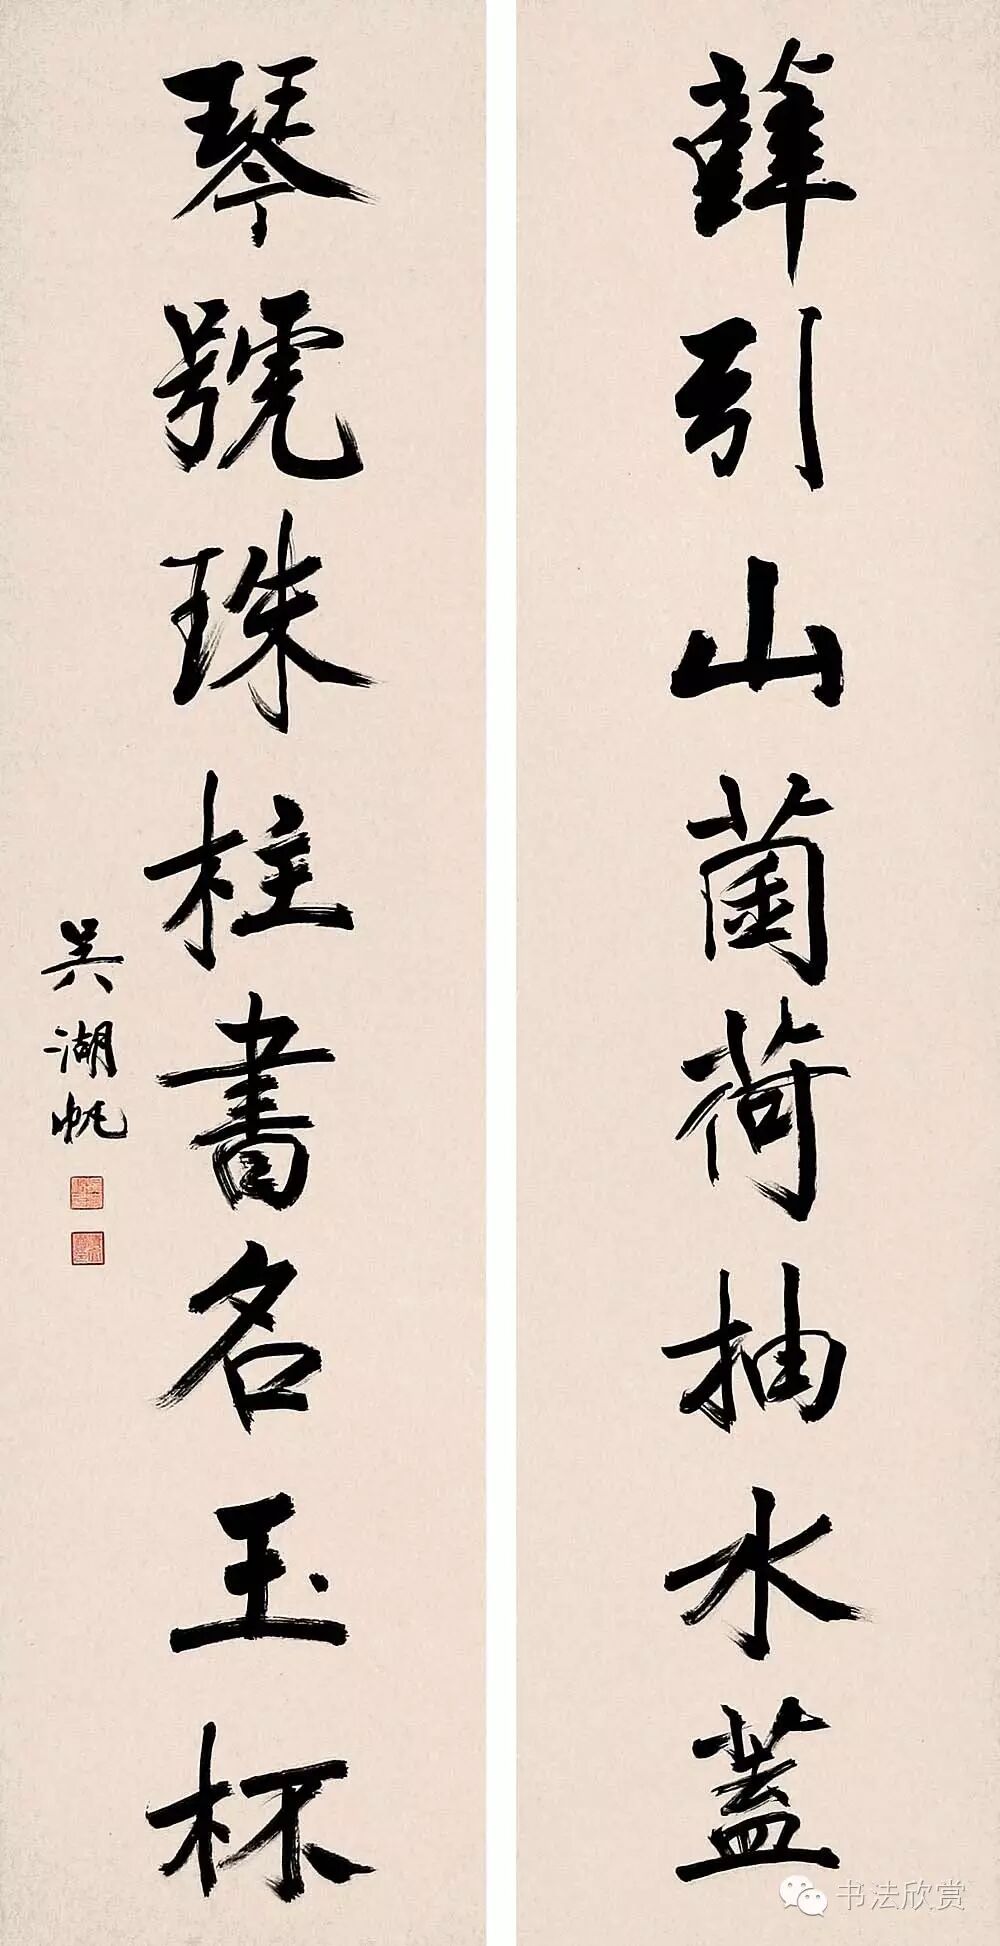 蘚引山茵荷抽水蓋
琴號珠柱書名玉杯
吴湖帆
书法欣赏